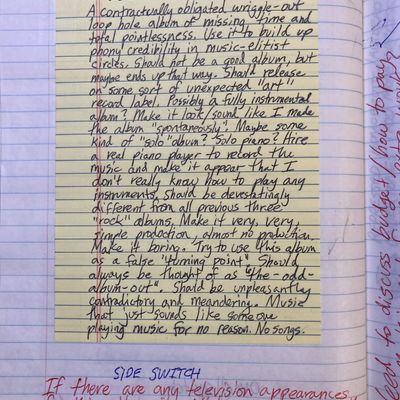 A contractually obligated wriggle-out
loop hole album of missing time and
total pointlessness. Use it to build up
phony credibility in music-elitist
circles. Should not be a good album, but
maybe ends up that way. Should release
on some sort of unexpected "art"
record label. Possibly a fully instrumental
album? Make it look/sound like I made
the album "spontaneously". Maybe some
kind of "solo" album? Solo piano? Hire
a real piano player to record the
music and make it appear that I
don't really know how to play any
instruments. Should be devastatingly
different from all previous three
"rock" albums. Make it very, very,
simple production, almost no production.
Make it boring. Try to use this album
as a false "turning point". Should
always be thought of as "the-odd-
album-out". Should be unpleasantly
contradictory and meandering. Music
that just sounds like someone
playing music for no reason. No songs.
SIDE SWITCH
If there are any television appearances,
need to discuss budget/how to pay